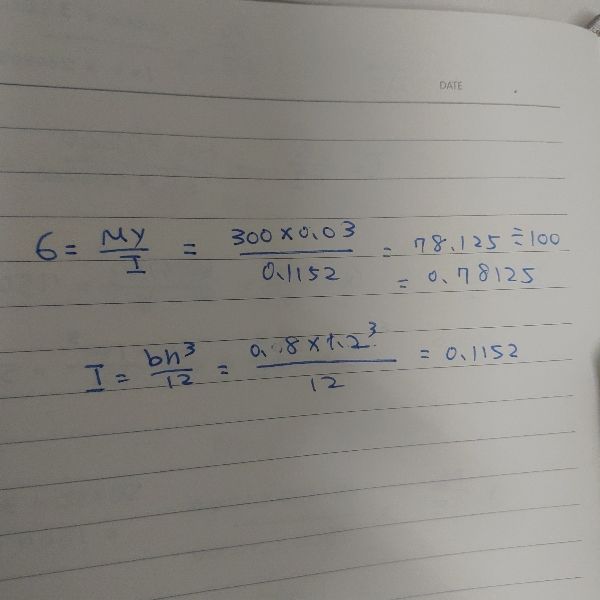 DATE
σ = My/I = 300×0.03/0.1152 = 78.125 ÷ 100
= 0.78125
I = bh³/12 = 0.8×1.2³/12 = 0.1152